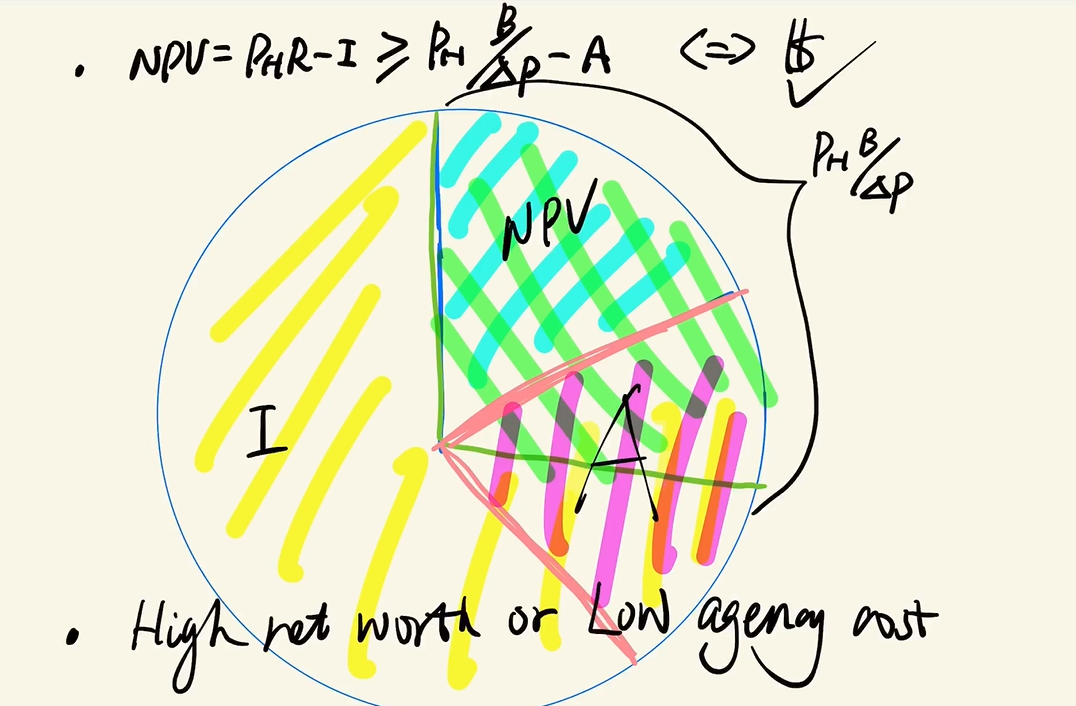 • NPV = PHR - I ≥ PH B/Δp - A <=> $ ✓
PH B/Δp
NPV
I
A
• High net worth or Low agency cost